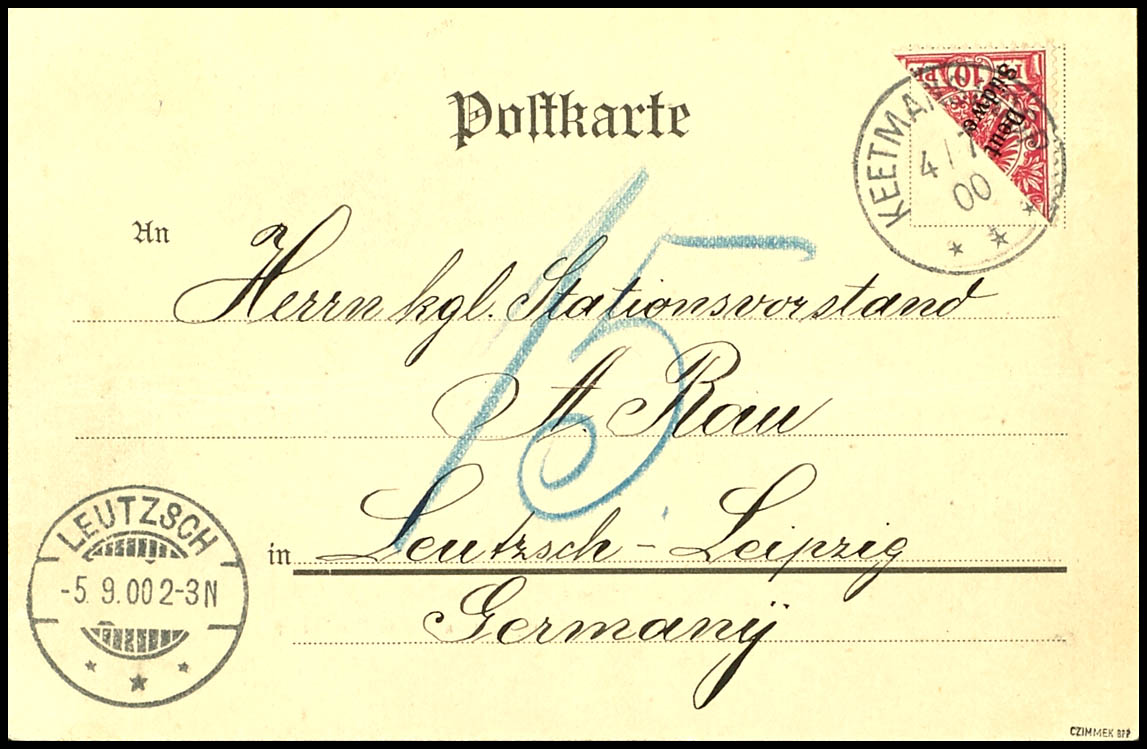 Postkarte
10 PF.
Deut
Südwe
KEETMAN
4/7
00
An
Herrn kgl. Stationsvorstand
A Rau
15
in Leutzsch - Leipzig
Germany
LEUTZSCH
-5. 9. 00 2-3N
CZIMMEK BPP